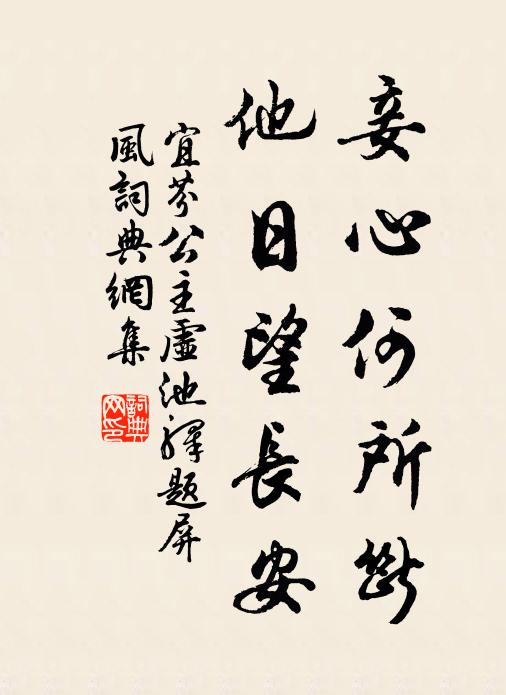 妾心何所斷
他日望長安
宜芬公主虛池驛題屏
風詞典網集
詞典
网印